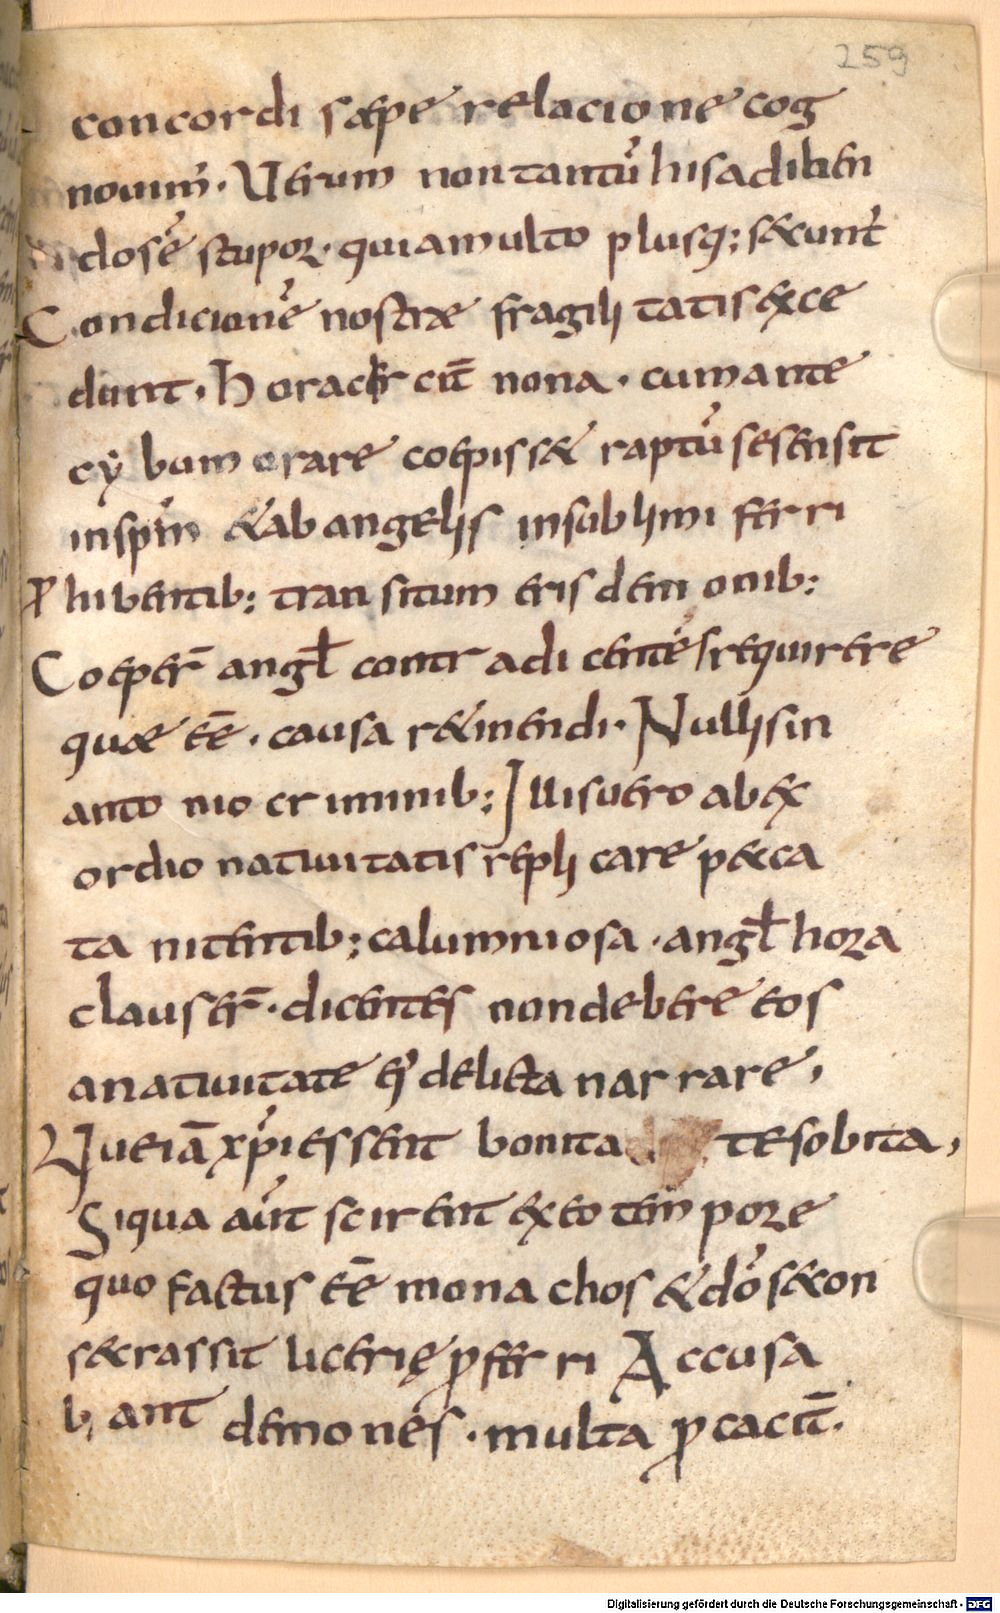 259
concordi sæpe relacione cog
nouim̄. Uerum non tantū his adiben
dosē stupor. quia multo plusq; secunt̄
Condicionē nostræ fragilitatis exce
dunt. Hora cir cū nona. cum ante
cybum orare coepisset raptū se sensit
in sp̄m & ab angelis in sublimi ferri
Prohibentib; transitum eris demonib;
Coeper̄ angl̄ contradicentēs requirere
quæ eē. causa retinendi. Nullis in
antonio criminib; Illis uero ab ex
ordio natiuitatis replicare pecca
ta nitentib; calumniosa. angl̄ hora
clauser̄. dicentes non debere eos
a natiuitate ei᾽ delicta narrare,
Que iā xp̄i essent bonita te sobita,
Si qua aūt scirent ex eo tempore
quo factus eē monachos & dō se con
secrassit licerię ꝓferri Accusa
b, ant demones. multa ꝓcacit̄.
Digitalisierung gefördert durch die Deutsche Forschungsgemeinschaft - DFG